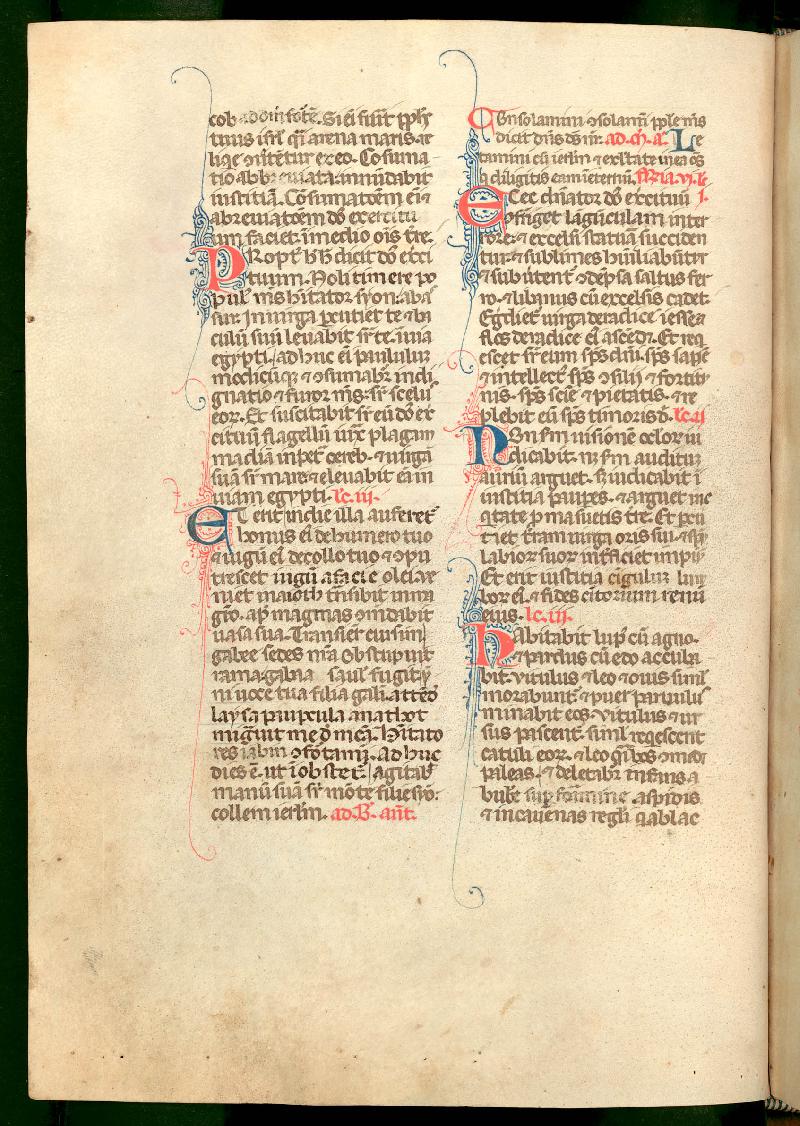 cob ad dm̄ fortē. Si ei fuīt pp̄ls
tuus isrl̄ q̄i arena maris. re
liqe ɔūtētur ex eo. Cōsuma
tio abbreuiata inūdabit
iustitiā. Cōsumatōem ei᷒
abreuiatōem dō exercitu
um faciet ī medio oīs tre.
PRopt̄ h̄ h̄ dicit dō exci
tuum. Noli timere po
pul᷒ m̄s h̄itator syon. ab a
sur. In uirga p̄cutiet te ⁊ ba
culū suū leuabit sr̄ te. in uia
egypti. adhuc ei paululuꝫ
modicūqꝫ ⁊ ɔsumabr̄ indi
gnatio ⁊ furor m̄s. sr̄ scelu᷒
eoꝝ. Et suscitabit sr̄ eū dō ex
cituū flagellū iux̄ plagam
madiā in pet᷒ oreb. ⁊ uirgā
suā sr̄ mare ⁊ eleuabit eā in
uiam egypti. lc̄. iii.
ET erit in die illa auferet᷒
honus ei᷒ de humero tuo
⁊ iugū ei᷒ de collo tuo ⁊ ɔpu
trescet iugū a facie olei. ue
niet in aioth t̄nsibit in ma
gro. ap᷒ magmas ɔmdabit
uasa sua. Transier̄ cursim
gabee sedes nr̄a Obstupuit
rama. gabaa saul᷒ fugit. hi
ni uoce tua filia gali. attēd
laysa paupcula anathot
migͣuit medemea. h̄itato
res iabim ɔfortamī. Adhuc
dies ē. ut ī obstet᷒. agitab᷒
manū suā sr̄ mōte filie syō.
collem ierlm̄. ad .B. ant̄.
COnsolamini ɔsolamī pp̄le m̄s
dicit dn̄s ds̄ ur̄. ad. m̄. a. Le
tamini cū ierlm̄ ⁊ exl̄tate in ea oēs
q̄ diligitis eam ī eternū. ffr̄ia. vi. lc̄.
ECce dn̄ator dō exercituū i.
ɔfriget lagūculam in ter
rore. ⁊ excelsi statura succiden
tur. ⁊ sublimes hūiliabūtr̄
⁊ subūtent᷒ ɔdēpsa saltus fer
ro. ⁊ libanus cū excelsis cadet.
Egdiet᷒ uirga de radice iesse. ⁊
flos de radice ei᷒ ascēdz. Et req̄
escet sr̄ eum sp̄s dn̄i. sp̄s sapīe
⁊ intellect᷒. sp̄s ɔsilij ⁊ fortitu
nis. sp̄s scīe ⁊ pietatis. ⁊ re
plebit eū sp̄s timoris d. lc̄. ii
NOn sm̄ uisionē oclor᷒ iu
dicabit. n̄ sm̄ auditū
auriū arguet. S; iudicabit ī
iustitia paupes. ⁊ arguet in e
q̄tate p māsuetis tre. Et pcu
tiet t̄ram uirga oris sui. ⁊ sp̄u
labior᷒ suor᷒ inf̄ficiet impiū
Et erit iustitia cigulū lum
bor᷒ ei᷒. ⁊ fides cīctorium renū
eius. lc̄. iii.
HAbitabit lup᷒ cū agno.
⁊ pardus cū edo accuba
bit. Vitulus ⁊ leo ⁊ ouis simul
morabunt᷒ ⁊ puer paruulus
minabit eos. Vitulus ⁊ ur
sus pascent᷒. simul reqescent
catuli eoꝝ. ⁊ leo q̄i bos ɔmedz
paleas. ⁊ delectabr̄ infans a
bube᷒ sup foramine aspidis
⁊ in cauenas reguli q̄ ablac